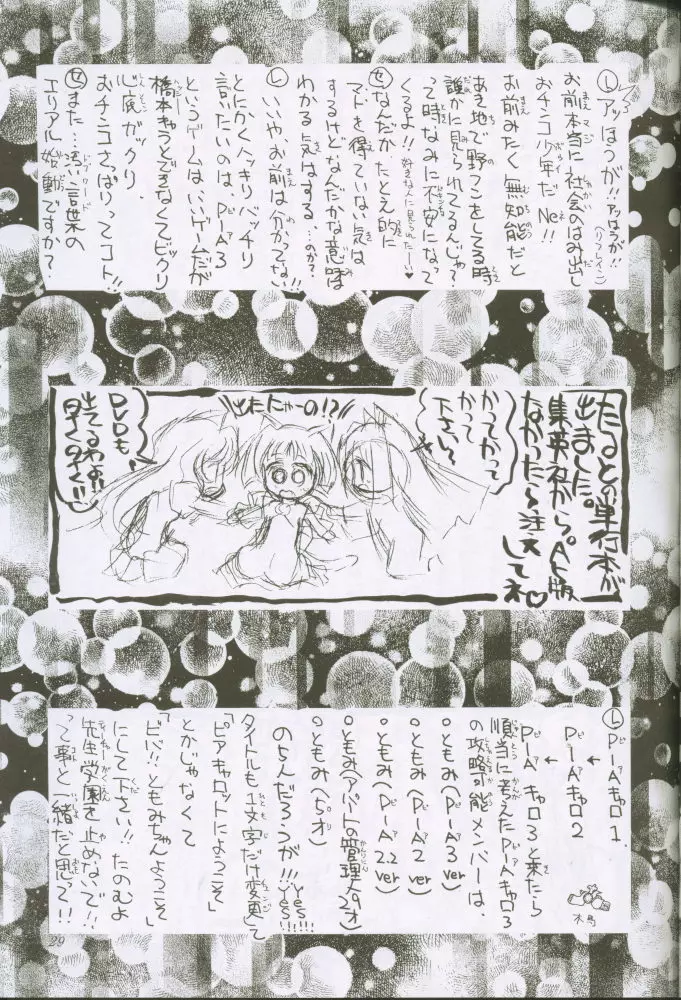 Ⓛアッはうが!!アッはうが!!
(リフレイン)
お前本当に社会のはみ出し
おチンコ少年だNe!!
お前みたく無知能だと
あき地で野ぐそしてる時
誰かに見られてるんじゃ?
って時なみに不安になって
くるよ!!好きな人に見られたー♥
Ⓢなんだか…たとえ的に
マトを得ていない気は
するけどなんだかな意味は
わかる気はする…のか?
Ⓛいいや、お前は分かってない
とにかくハッキリバッチリ
言いたいのは、P・IA3
というゲームは、いいゲームだが
橋本キャラとできなくてビックリ
心底ガックリ、
おチンコさっぱりってコト!!
Ⓢまた…汚い言葉の
エリアル始動ですか?
たるとの単行本が
出ました。
集英社から。A5版
なかったら注文
してネ♡
かってかって
かって
下さい〜
出たにゃーの!?
DVDも
出てるわよ!!
早く早く!!
ⓁP・IAキャロ1.
↓
P・IAキャロ2
↓
P・IAキャロ3と来たら
順当に考えたP・IAキャロ3
の攻略可能メンバーは、
○ともみ(P・IA3ver)
○ともみ(P・IA2ver)
○ともみ(P・IA2.2ver)
○ともみ(アパートの管理人29才)
○ともみ(5才)
のうちんだろうが!!!yes!!yes!!!
タイトルも1文字だけ変更して
「ピアキャロットにようこそ」
とかじゃなくて
「ピバ!!ともみちゃんようこそ」
にして下さい!!たのむよ
先生学園を止めないで!!
って事と一緒だと思って!!
29